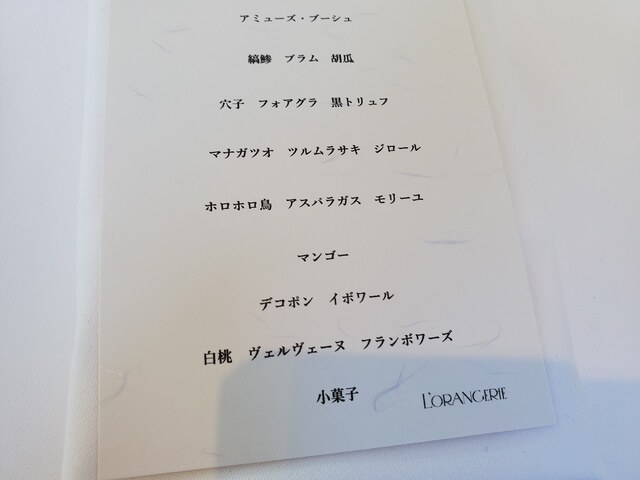 アミューズ・ブーシュ
縞鯵 プラム 胡瓜
穴子 フォアグラ 黒トリュフ
マナガツオ ツルムラサキ ジロール
ホロホロ鳥 アスパラガス モリーユ
マンゴー
デコポン イボワール
白桃 ヴェルヴェーヌ フランボワーズ
小菓子
L'ORANGERIE